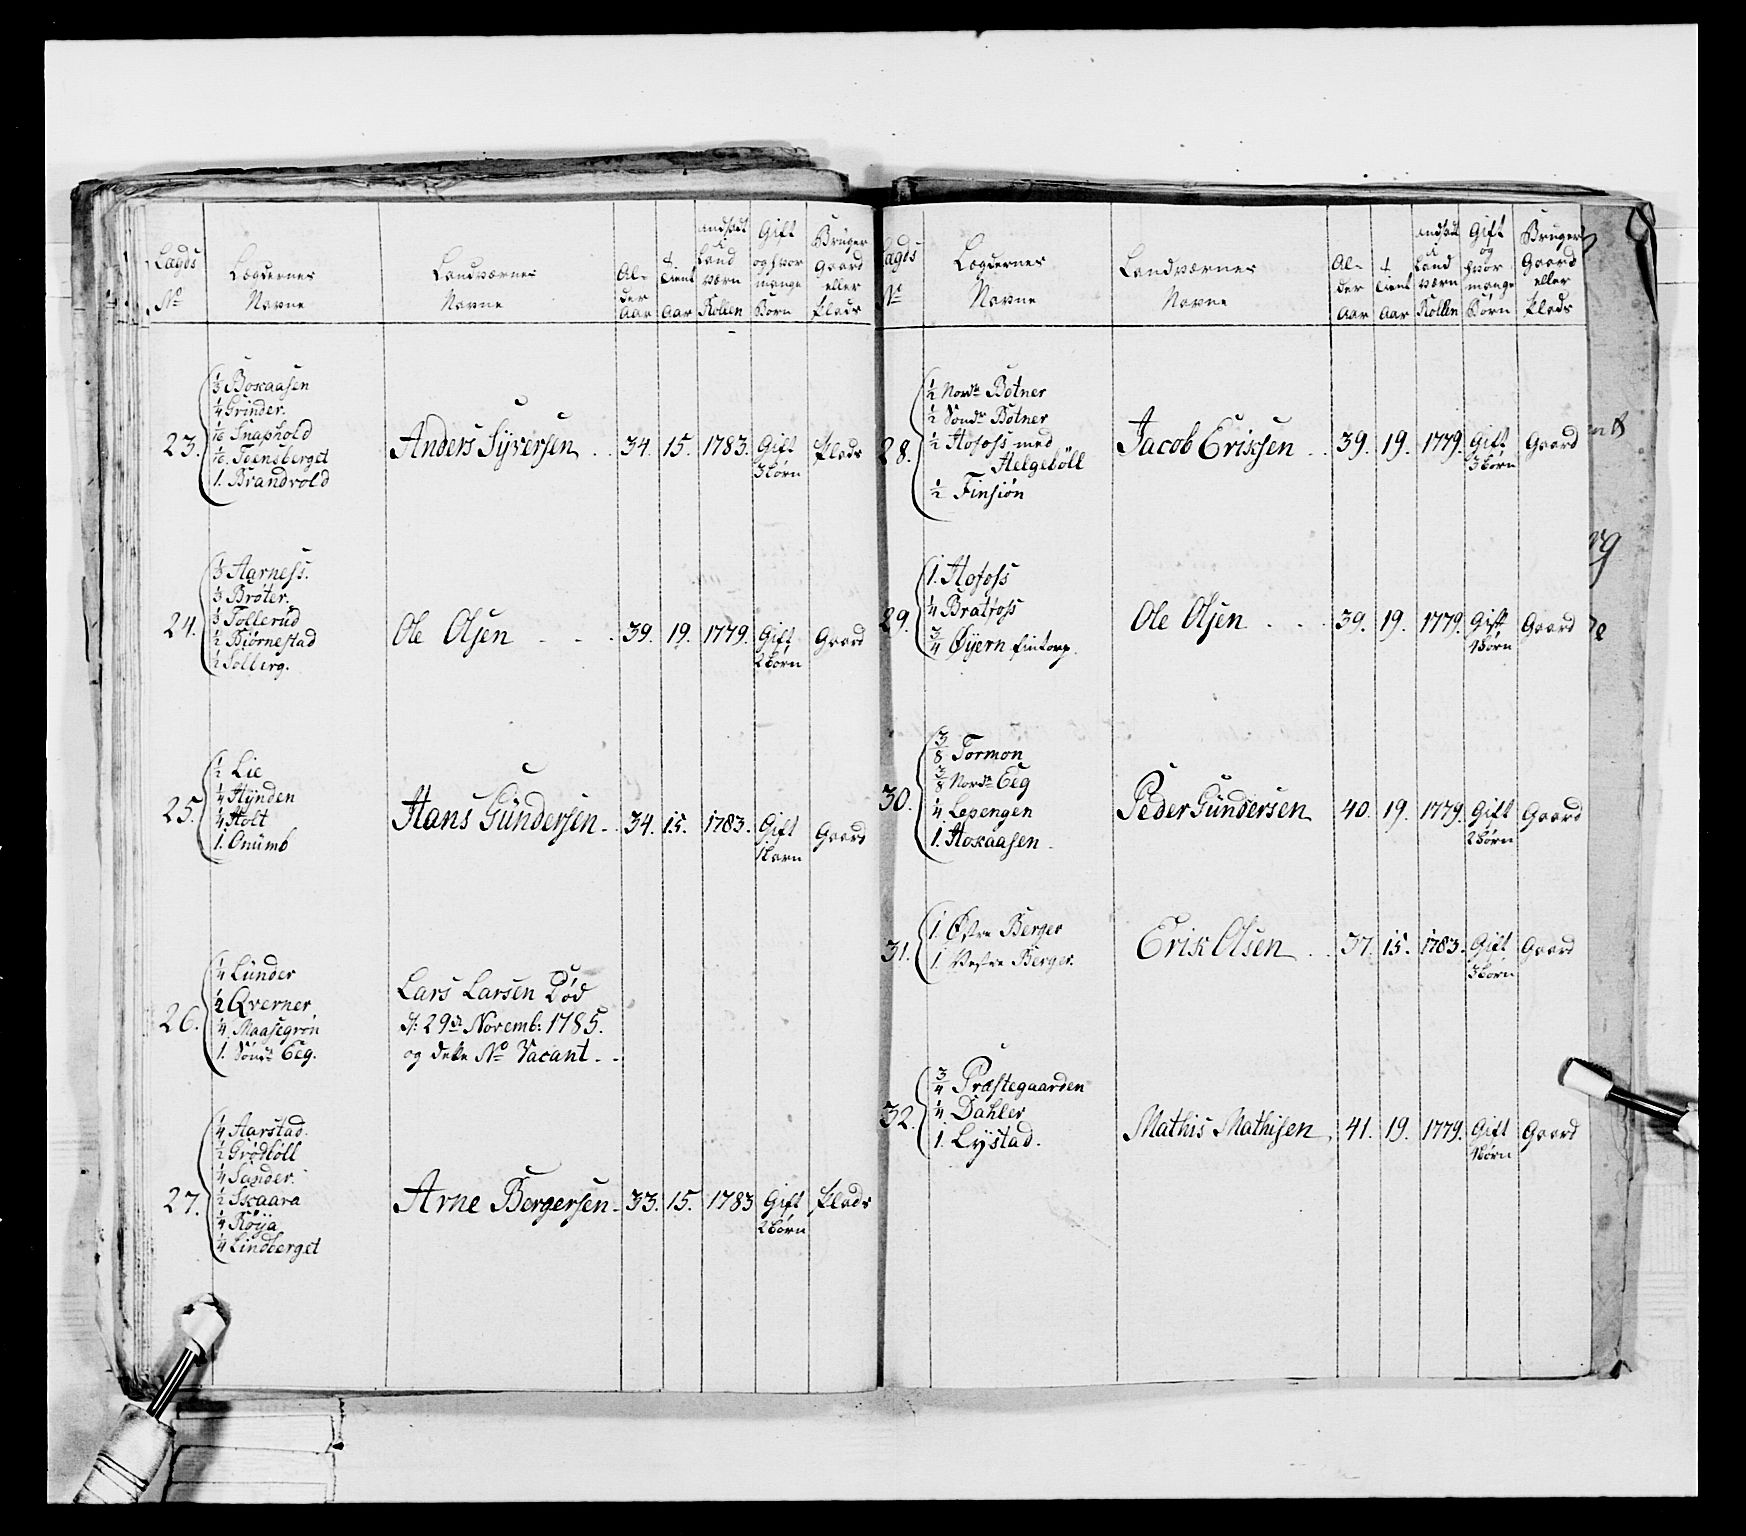 Lægds No
Lægdernes Navne
Landværnes Navne
Al-der Aar
tient Aar
andsadt i Land værn Rollen
Gift og hvor mange Børn
Bruger Gaard eller Plads
23.
1/3 Boxaasen
1/4 Grinder.
1/16 Snaphold
1. Brandvold
Anders Syversen . . 34. 15. 1783. Gift 3 Børn Plads
24.
1/3 Aarness.
1/3 Brøter.
1/3 Tollerud
1/2 Biørnestad
1/2 Solberg.
Ole Olsen . . . 39. 19. 1779. Gift 2 Børn Gaard
25.
1/2 Lie
1/4 Hynden
1/4 Holt
1. Onumb
Hans Gundersen . . 34. 15. 1783. Gift 1 Barn Gaard
26.
1/4 Lunder
1/2 Qverner
1/4 Maasegrøn
1. Sønd. Eeg.
Lars Larsen Død
d: 29de Novemb: 1785.
og dette No Vacant . .
27.
1/4 Aarstad.
1/2 Grødtøll
1/4 Sander.
1/2 Skaara
1/4 Røya
1/4 Lindberget
Arne Bergersen . 33. 15. 1783 Gift 2 Børn Plads
Lægds No
Lægdernes Navne
Landværnes Navne
Al-der Aar
tient Aar
andsadt i Land værn Rollen
Gift og hvor mange Børn
Bruger Gaard eller Plads
28.
1/2 Nordre Botner
1/2 Sondr Botner
1/2 Hofoss med
Helgebøll
1/2 Finsiøn
Jacob Erichsen . . 39. 19. 1779. Gift 3 Børn Gaard
29.
1. Hofoss
1/4 Bratfoss
3/4 Øyern fintorp.
Ole Olsen . . . 39. 19. 1779. Gift 4 Børn Gaard
30.
3/8 Tormon
3/8 Nordre Eeg
1/4 Lepengen
1. Hoxaasen.
Peder Gundersen 40. 19. 1779. Gift 2 Børn Gaard
31.
1. Østre Berger
1. Vestre Berger.
Erik Olsen . . 37. 15. 1783. Gift 3 Børn Gaard
32.
3/4 Præstegaarden
1/4 Dahler
1. Lystad.
Mathis Mathisen 41. 19. 1779. Gift Gaard